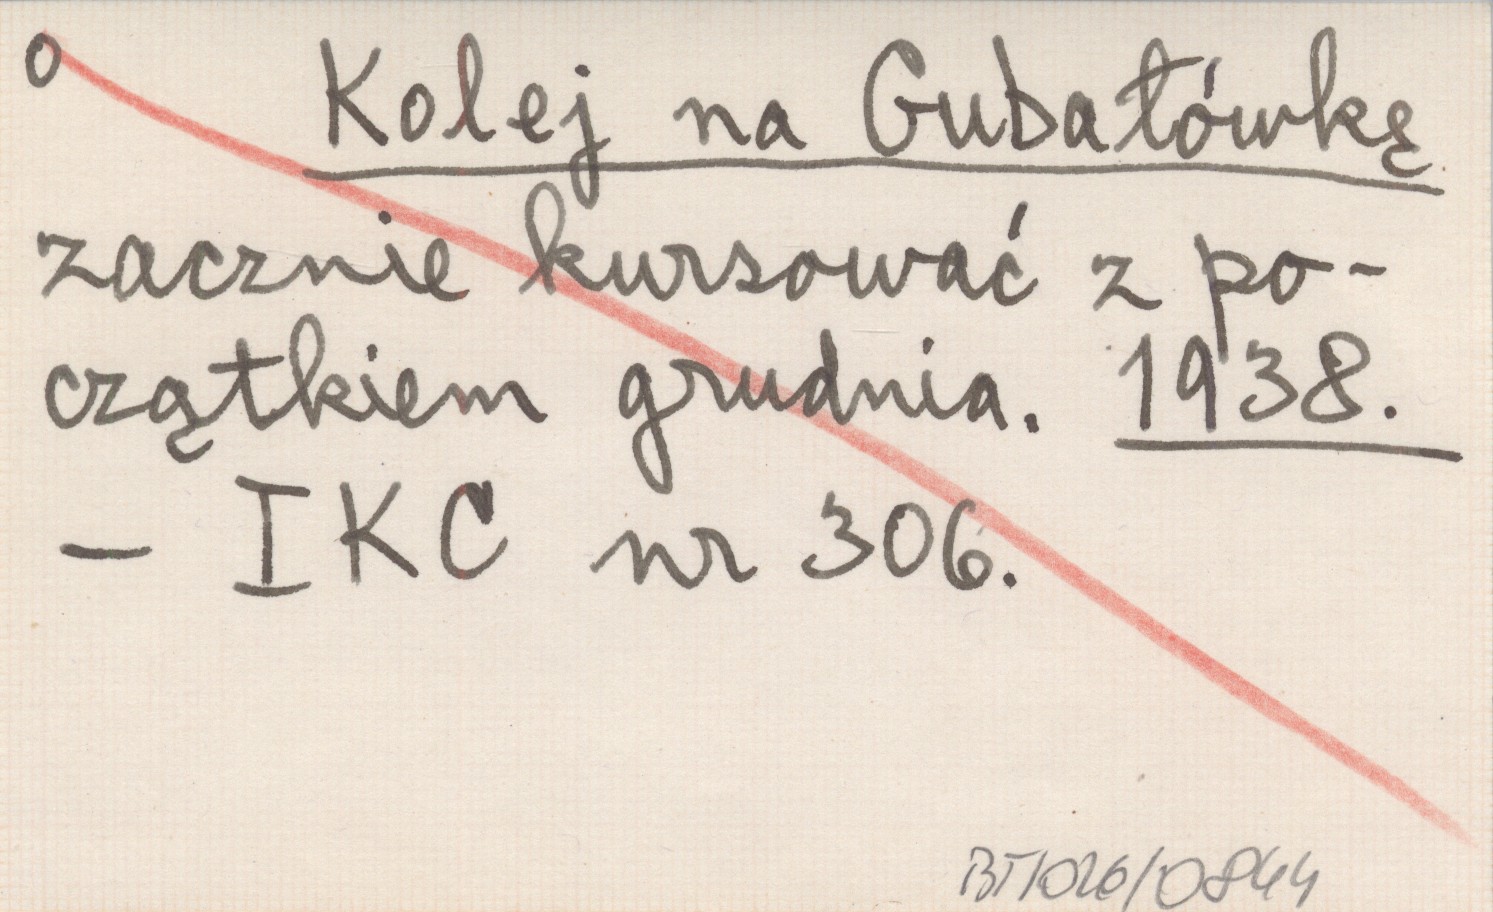 o Kolej na Gubałówkę
zacznie kursować z po-
czątkiem grudnia. 1938.
- IKC nr 306.
BT/026/0844